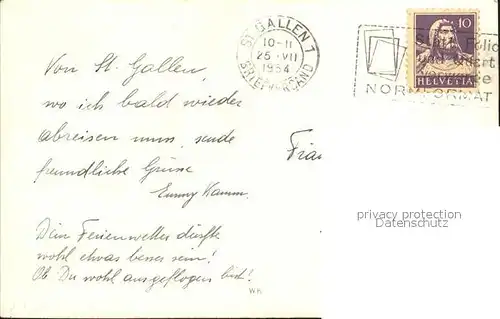 ST. GALLEN 1
10-11
25.VII
1934
BRIEFVERSAND
10
HELVETIA
NORMFORMAT
Von St. Gallen,
wo ich bald wieder
abreisen muss, sende
freundliche Grüsse
Emmy Kamm
Frau
Dein Ferienwetter dürfte
wohl etwas besser sein!
Ob Du wohl ausgeflogen bist!
WK
privacy protection
Datenschutz